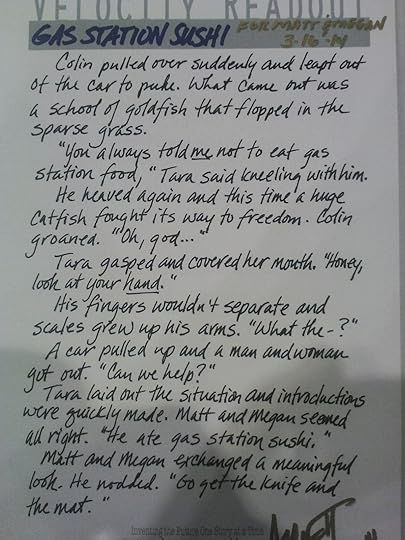 VELOCITY READOUT
GAS STATION SUSHI
3-16-14
Colin pulled over suddenly and leapt out
of the car to puke. What came out was
a school of goldfish that flopped in the
sparse grass.
"You always told me not to eat gas
station food," Tara said kneeling with him.
He heaved again and this time a huge
catfish fought its way to freedom. Colin
groaned. "Oh, god..."
Tara gasped and covered her mouth. "Honey,
look at your hand."
His fingers wouldn't separate and
scales grew up his arms. "What the-?"
A car pulled up and a man and woman
got out. "Can we help?"
Tara laid out the situation and introductions
were quickly made. Matt and Megan seemed
all right. "He ate gas station sushi."
Matt and Megan exchanged a meaningful
look. He nodded. "Go get the knife and
the mat."
Inventing the Future One Story at a Time